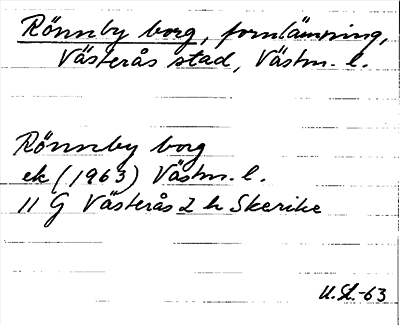 Rönnby borg, fornlämning,
Västerås stad, Västm. l.
Rönnby borg
ek (1963) Västm. l.
11 G Västerås 2 h Skerike
U.L.-63